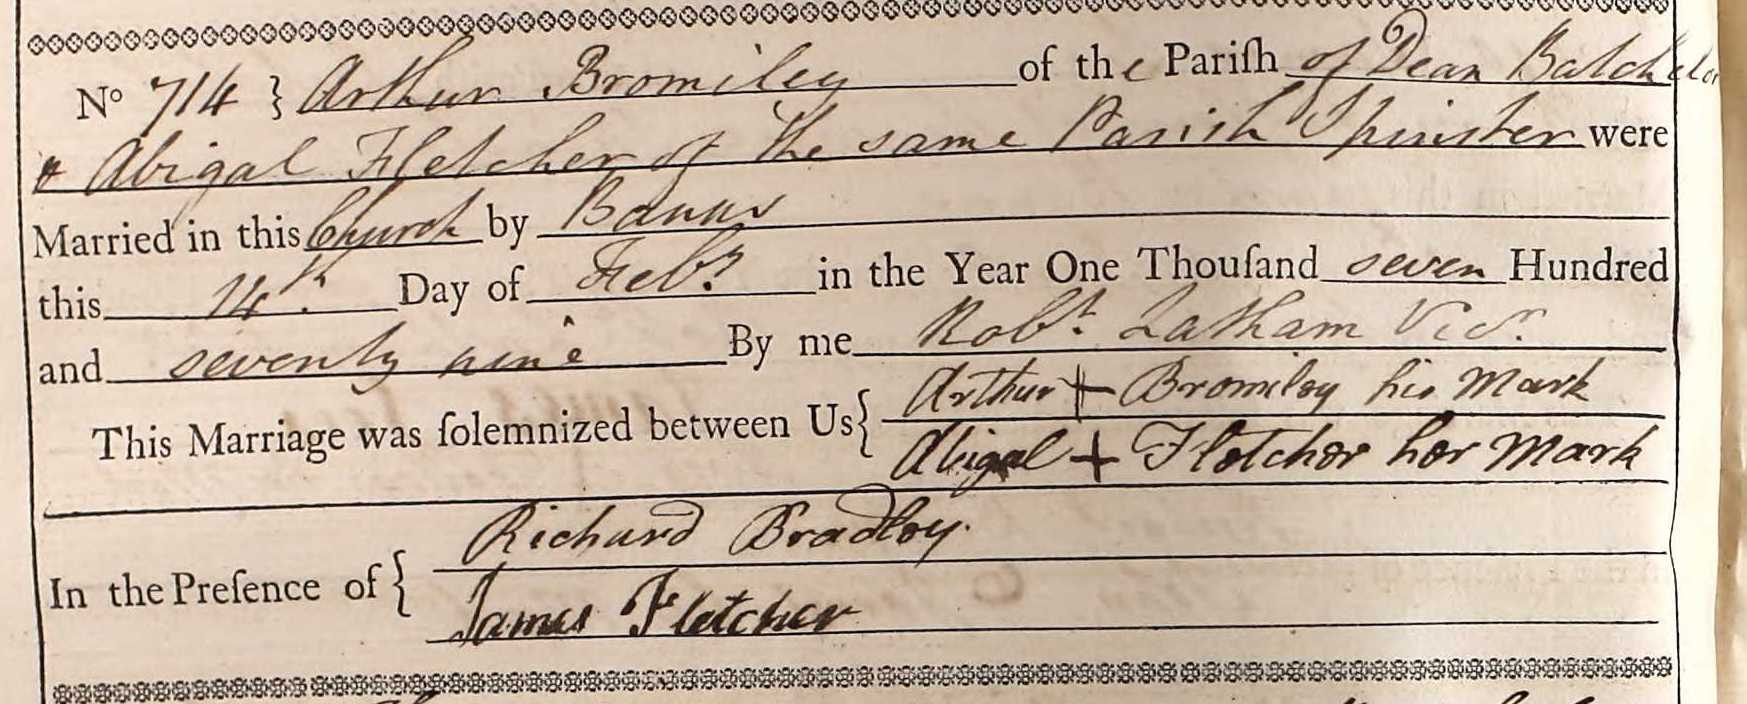 No 714 } Arthur Bromiley of the Pariſh of Dean Batchelor
& Abigal Fletcher of the same Parish Spinster were
Married in this Church by Banns
this 14th. Day of Feby. in the Year One Thouſand seven Hundred
and seventy nine By me Robt. Latham Vicr.
This Marriage was ſolemnized between Us { Arthur + Bromiley his Mark
Abigal + Fletcher her Mark
In the Preſence of { Richard Bradley.
James Fletcher